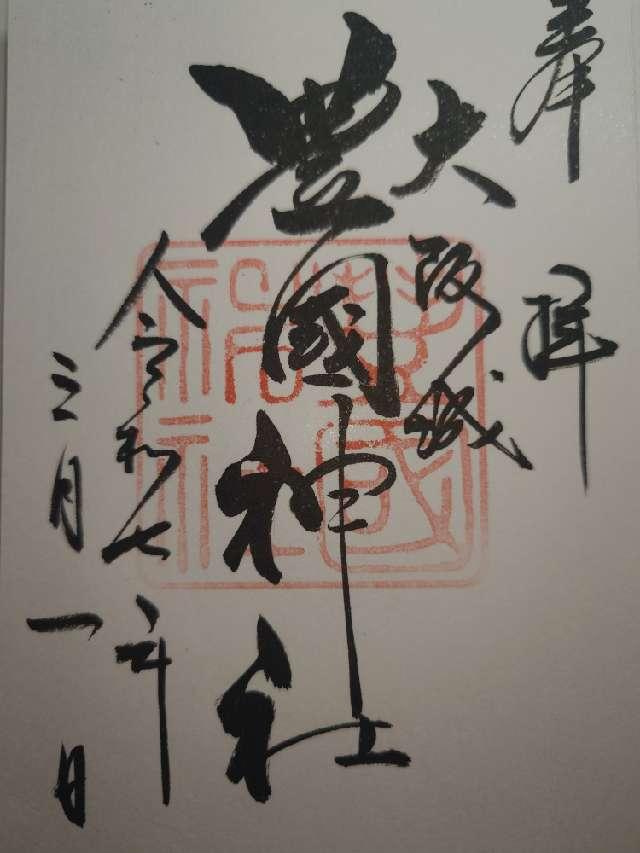 奉拝
大阪城
豊國神社
令和七年
三月一日
豊國神社